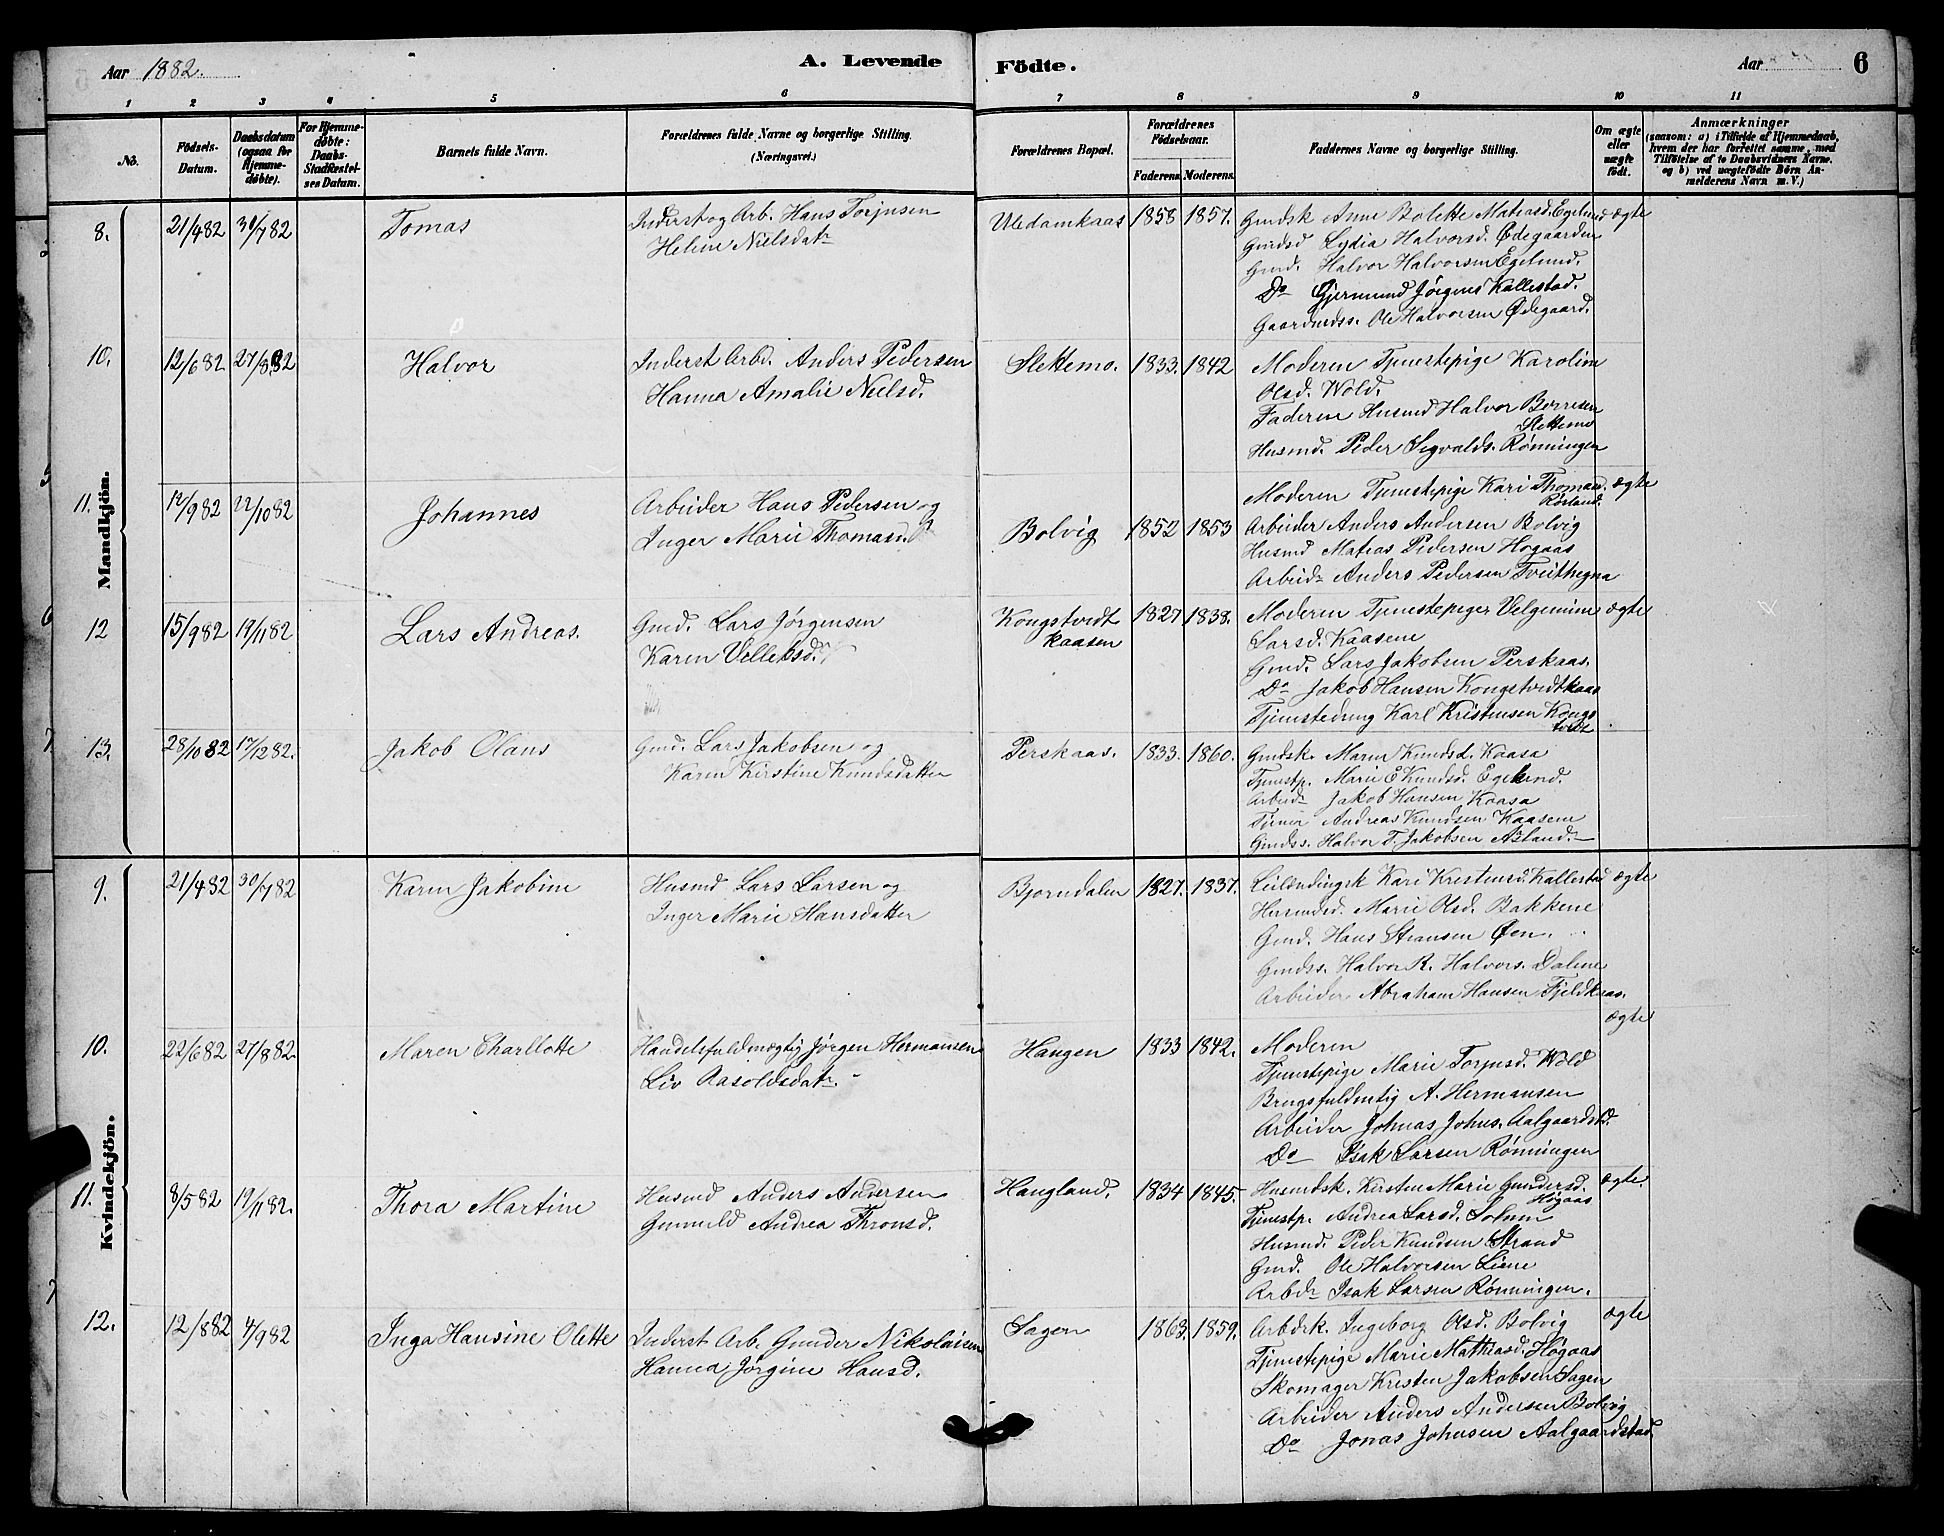 Aar 1882.
A. Levende
Födte.
Aar
6
1 2 3 4 5 6 7 8 9 10 11
No.
Födsels-
Datum.
Daabsdatum
(ogsaa for
Hjemme-
döbte).
For Hjemme-
döbte:
Daabs-
Stadfæstel-
ses Datum.
Barnets fulde Navn.
Forældrenes fulde Navne og borgerlige Stilling.
(Næringsvei.)
Forældrenes Bopæl.
Forældrenes
Födselsaar.
Faderens Moderens.
Faddernes Navne og borgerlige Stilling.
Om ægte
eller
uægte
födt.
Anmærkninger
(saasom: a) i Tilfælde af Hjemmedaab,
hvem der har forrettet samme, med
Tilföielse af to Daabsvidners Navne,
og b) ved uægtefödte Börn An-
melderens Navn m. V.)
Mandkjön.
8. 21/4 82 30/7 82 Tomas
Inderst og Arb. Hans Torjusen
Helene Nielsdatr
Uledamkaas 1858 1857.
Gmdsk Anne Bolette Matiasd. Egelund ægte
Gmdsd Lydia Halvorsd. Ødegaarden
Gmd. Halvor Halvorsen Egelund.
Do Gjermund Jørgens Kallestad.
Gaardmdss. Ole Halvorsen Ødegaard.
10. 12/6 82 27/8 82 Halvor
Inderst Arbd. Anders Pedersen
Hanna Amalie Nielsd.
Slettemo. 1833. 1842
Moderen Tjenestepige Karoline
Olsd. Wold.
Faderen Husmd Halvor Børresen
Slettemo
Husmd. Peder Sigvalds. Rønningen
11. 12/9 82 22/10 82 Johannes
Arbeider Hans Pedersen og
Inger Marie Thomasd.
Bolvig 1852 1853
Moderen Tjenestepige Kari Thomasd. ægte
Rørland.
Arbeider Anders Andersen Bolvig
Husmd Matias Pedersen Hogaas
Arbeidr Anders Pedersen Tveithegna
12 15/9 82 19/11 82 Lars Andreas.
Gmd. Lars Jørgensen
Karen Velleksd.
Kongstvedt
kaasen
1827 1838.
Moderen Tjenestepiger Velgemine ægte
Larsd. Kaasene
Gmd. Lars Jakobsen Perskaas.
Do Jakob Hansen Kongstvedtkaas
Tjenestedreng Karl Kristensen Kongs
tvedt
13. 28/10 82 17/12 82. Jakob Olaus
Gmd. Lars Jakobsen og
Karen Kirstine Knudsdatter
Perskaas. 1833. 1860.
Gmdsk. Maren Knudsd. Kaasa
Tjenestp. Marie E Knudsd. Egelund.
Arbeidr Jakob Hansen Kaasa
Tjener Andreas Knudsen Kaasene
Gmdss. Halvor T. Jakobsen Aasland.
Kvindekjön.
9. 21/4 82 30/7 82 Karen Jakobine
Husmd Lars Larsen og
Inger Marie Hansdatter
Bjorndalen 1827. 1837.
Leilendingsk Kari Kristensd. Kallestad ægte
Husmdsd. Marie Olsd. Bakkene
Gmd. Hans Stransen Øen.
Gmdss. Halvor R. Halvors. Dalene
Arbeider Abraham Hansen Fjeldkaas.
10. 22/6 82 27/8 82. Maren Charllotte
Handelsfuldmægtig Jørgen Hermansen
Liv Aasoldsdatr.
Haugen 1833 1842.
ægte
Moderen
Tjenestepige Marie Torjusd. Wold
Brugsfuldmetig A. Hermansen
Arbeider Johnas Johns. Aalgaardstd.
Do Isak Larsen Rønningen
11. 8/5 82 19/11 82. Thora Martine
Husmd Anders Andersen
Gunnild Andrea Thronsd.
Haugland. 1834 1845.
Husmdsk. Kirsten Marie Gundersd. ægte.
Høgaas
Tjenestp. Andrea Larsd. Solum
Husmd. Peder Knudsen Strand
Gmd. Ole Halvorsen Liene
Arbdr Isak Larsen Rønningen.
12. 12/8 82 4/9 82 Inga Hansine Olette
Inderst Arb. Gunder Nikolaisen
Hanna Jørgine Hansd.
Sagen 1863. 1859.
Arbdsk. Ingeborg Olsd. Bolvig ægte
Tjenestepige Marie Mathiasd. Høgaas
Skomager Kristen Jakobsen Sagen
Arbeider Anders Andersen Bolvig
Do Jonas Johnsen Aalgaardstad